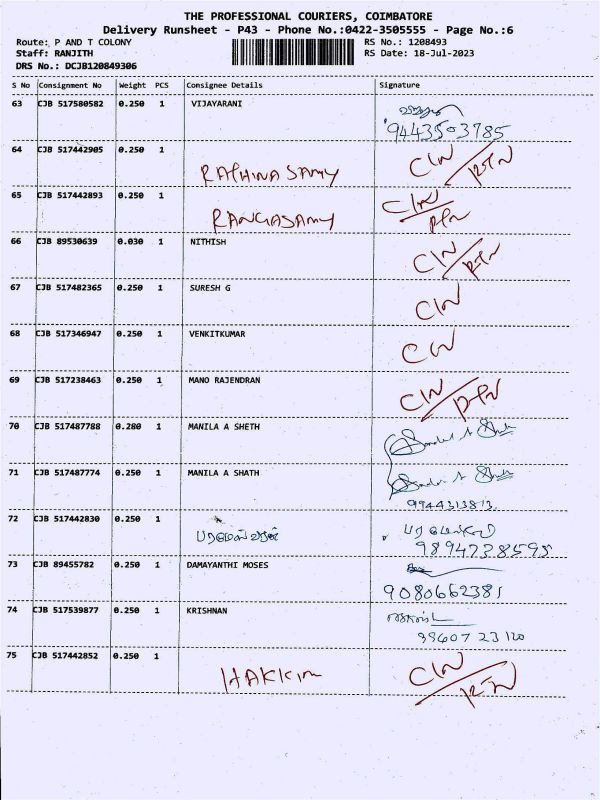 THE PROFESSIONAL COURIERS, COIMBATORE
Delivery Runsheet - P43 - Phone No.:0422-3505555 - Page No.:6
Route: P AND T COLONY RS No.: 1208493
Staff: RANJITH RS Date: 18-Jul-2023
DRS No.: DCJB120849306
S No Consignment No Weight PCS Consignee Details Signature
63 CJB 517580582 0.250 1 VIJAYARANI
9443503785
64 CJB 517442905 0.250 1 RATHINASAMY
65 CJB 517442893 0.250 1 RANGASAMY
66 CJB 89530639 0.030 1 NITHISH
67 CJB 517482365 0.250 1 SURESH G
68 CJB 517346947 0.250 1 VENKITKUMAR
69 CJB 517238463 0.250 1 MANO RAJENDRAN
70 CJB 517487788 0.280 1 MANILA A SHETH
71 CJB 517487774 0.250 1 MANILA A SHATH
9944313813
72 CJB 517442830 0.250 1
9894738595
73 CJB 89455782 0.250 1 DAMAYANTHI MOSES
9080662381
74 CJB 517539877 0.250 1 KRISHNAN
75 CJB 517442852 0.250 1 HAKKIM